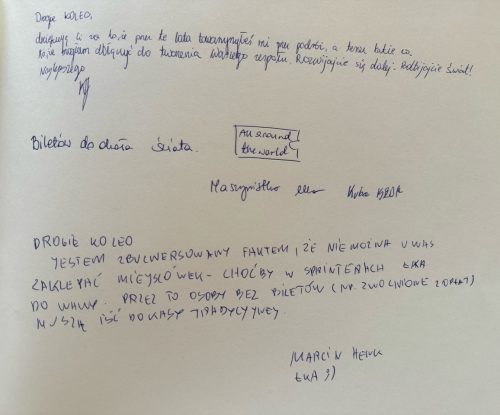 Drogie KOLEO,
dziękuję Ci za to, że przez te lata towarzyszyłeś mi przy podróży, a teraz także za
to, że mogłam dołączyć do tworzenia Waszego zespołu. Rozwijajcie się dalej i podbijajcie świat!
Najlepszego
Biletów do dookoła świata.
All around
the world
Maszynistko Kuba
DROGIE KOLEO
JESTEM ZBULWERSOWANY FAKTEM, ŻE NIE MOŻNA U WAS
ZAKLEPAĆ MIEJSCÓWEK - CHOĆBY W SPRINTERACH ŁKA
DO WAWY. PRZEZ TO OSOBY BEZ BILETÓW (NP. ZWOLNIONE Z OPŁAT)
MUSZĄ IŚĆ DO KASY TRADYCYJNEJ.
MARCIN
ŁKA ;)